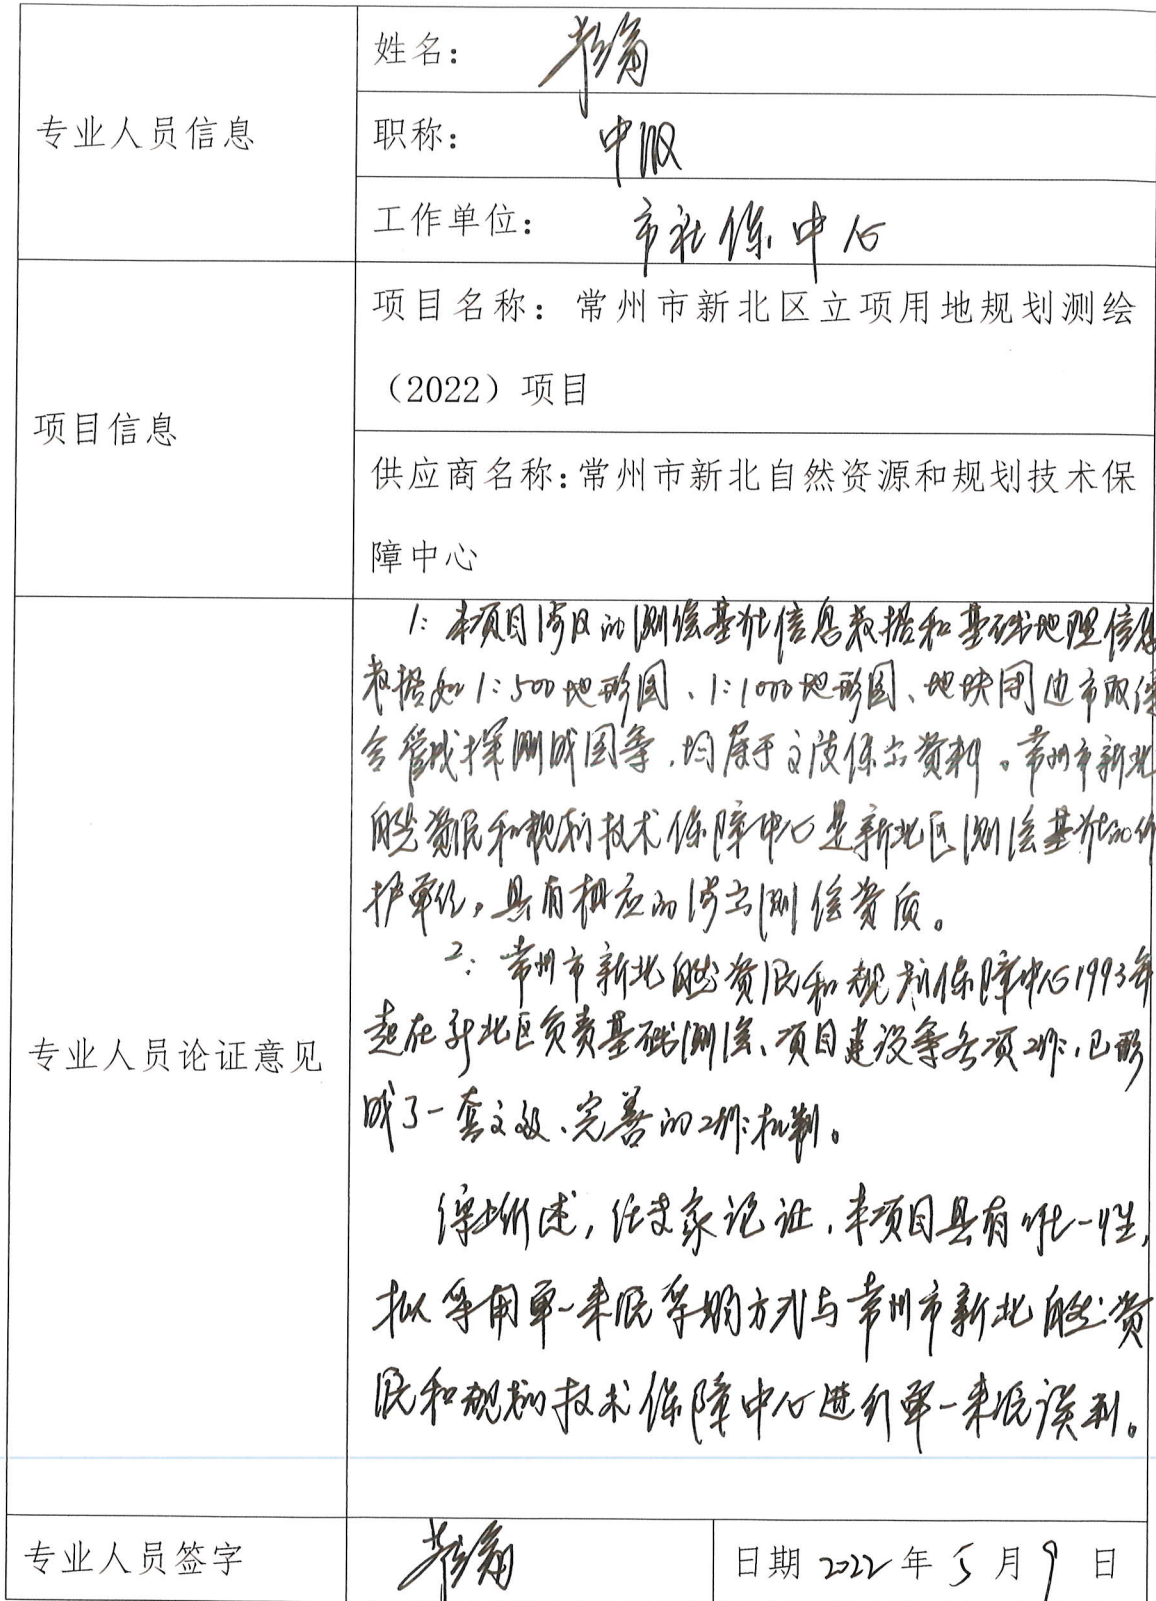 专业人员信息
姓名：
职称： 中级
工作单位： 市社保中心
项目信息
项目名称：常州市新北区立项用地规划测绘
（2022）项目
供应商名称：常州市新北自然资源和规划技术保
障中心
专业人员论证意见
1：本项目涉及的测绘基础信息数据和基础地理信息
数据如1：500地形图、1：1000地形图、地块周边市政综
合管线探测成图等，均属于涉密资料。常州市新北
自然资源和规划技术保障中心是新北区测绘基础的维
护单位，具有相应的涉密测绘资质。
2：常州市新北自然资源和规划保障中心1993年
起在新北区负责基础测绘、项目建设等各项工作，已形
成了一套、完善的工作机制。
综上所述，经专家论证，本项目具有唯一性，
拟采用单一来源采购方式与常州市新北自然资
源和规划技术保障中心进行单一来源谈判。
专业人员签字
日期 2022年5月9日